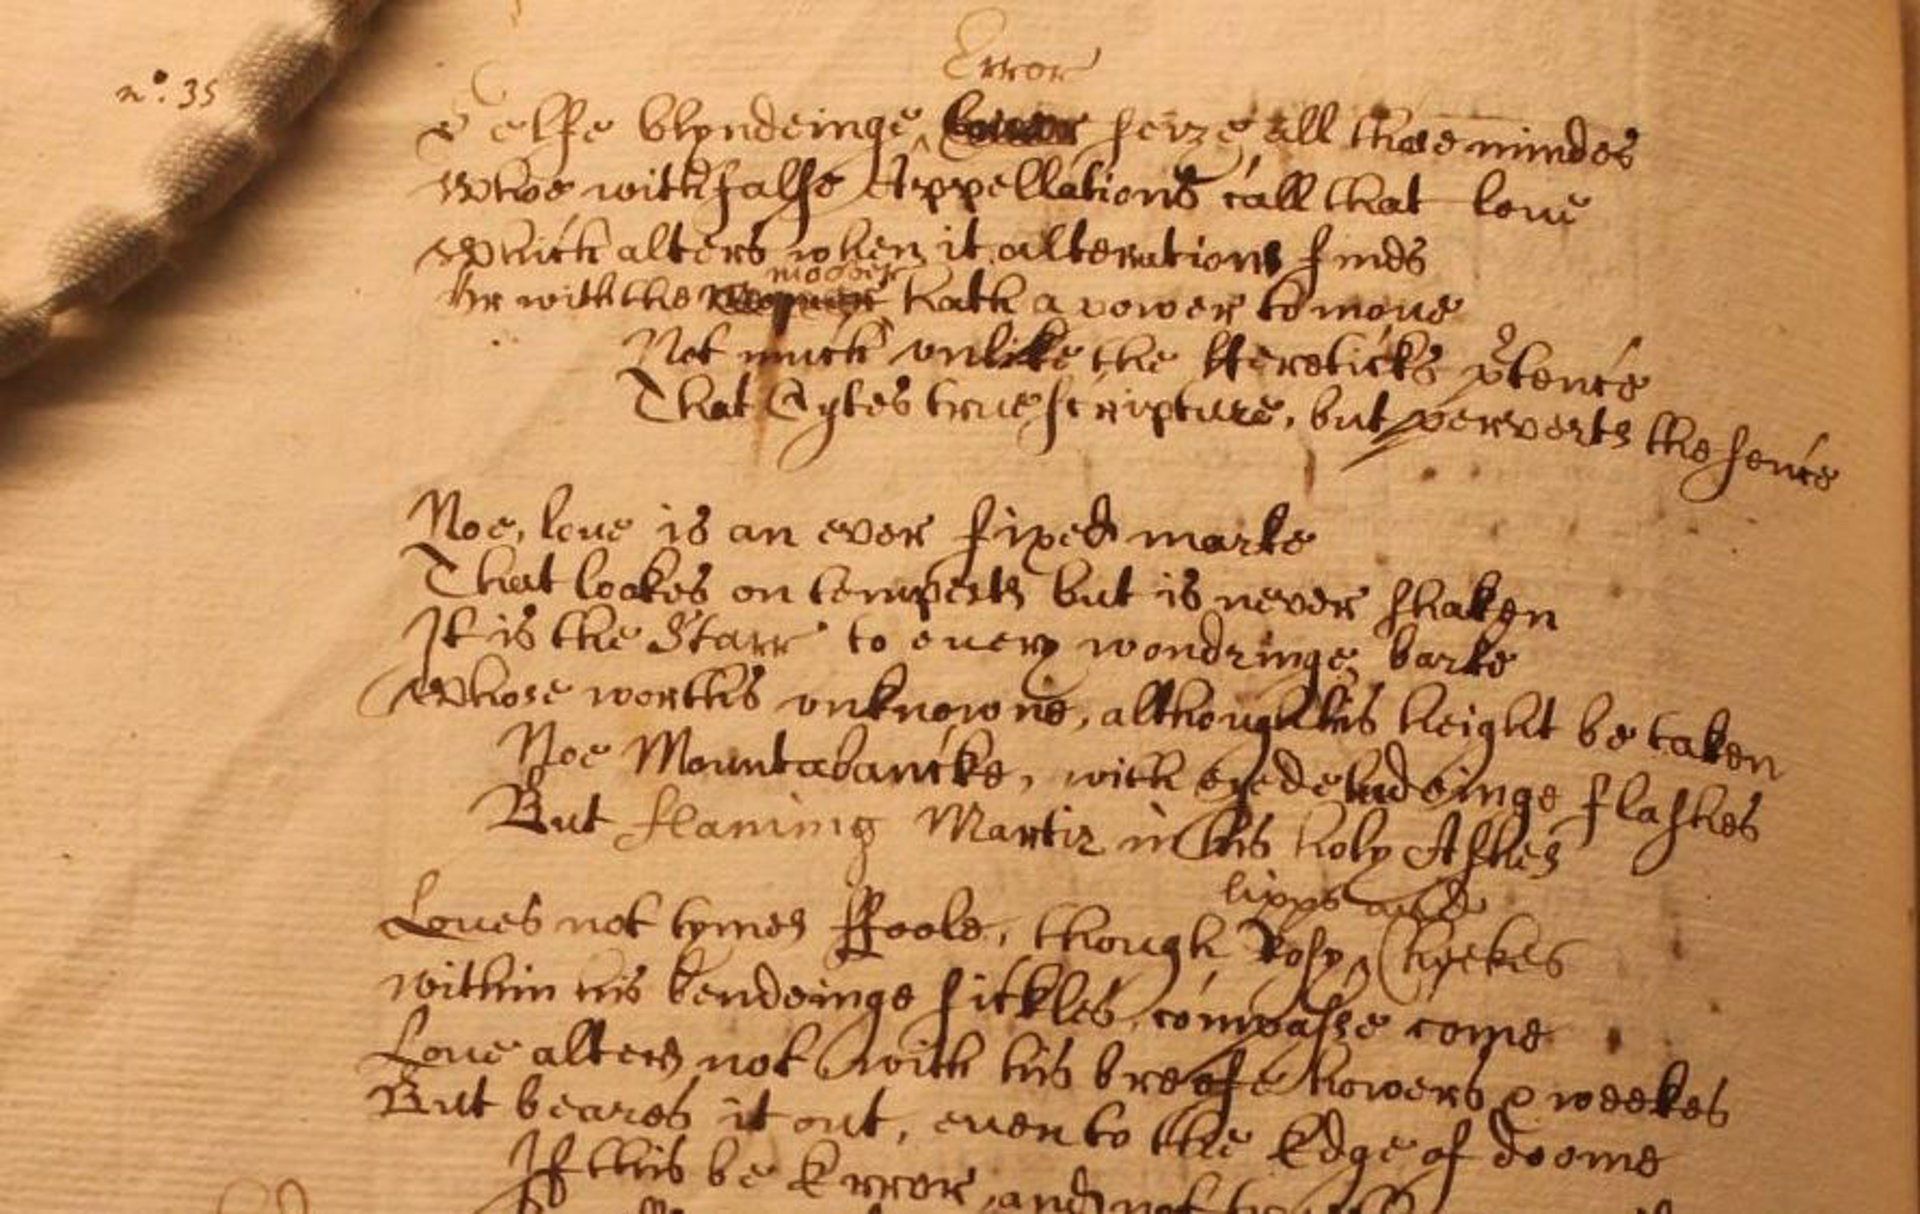 n°. 35
Error
Selfe blyndeinge seize all those mindes
Whoe with false Appellations call that loue
Which alters when it alterations finds
moover
Or with the hath a power to moue
Not much vnlike the Hereticks ptence
That Cytes true scripture, but perverts the sence
Noe, loue is an ever fixed marke
That lookes on tempests but is never shaken
It is the Starr to euery wondringe barke
Whose worths vnknowne, although his height be taken
Noe Mountabancke, with eyedeludeinge flashes
But flaming Martir in his holy Ashes
lipps and
Loues not tymes ffoole, though Rosy Cheekes
within his bendeinge sickles compasse come
Loue alters not with his breefe howers & weekes
But beares it out, euen to the Edge of doome
If this be Error, and not